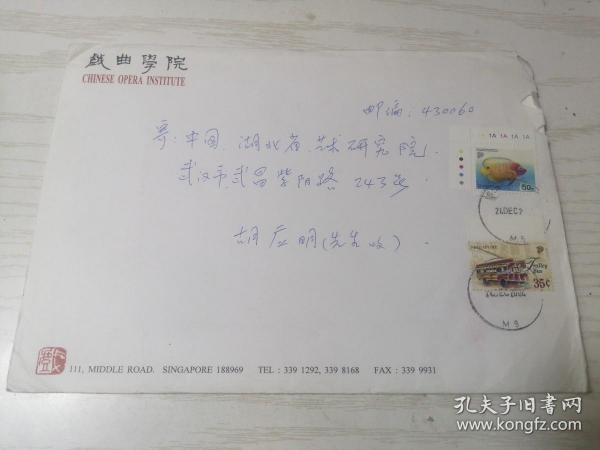 戯曲學院
CHINESE OPERA INSTITUTE
邮编：430060
寄：中国．湖北省．艺术研究院．
武汉市武昌紫阳路243号．
胡应明(先生收)．
1A 1A 1A 1A
50c
24DEC2
M 9
SINGAPORE
Trolley Bus
35¢
M 9
111, MIDDLE ROAD. SINGAPORE 188969 TEL : 339 1292, 339 8168 FAX : 339 9931
孔夫子旧书网
www.kongfz.com